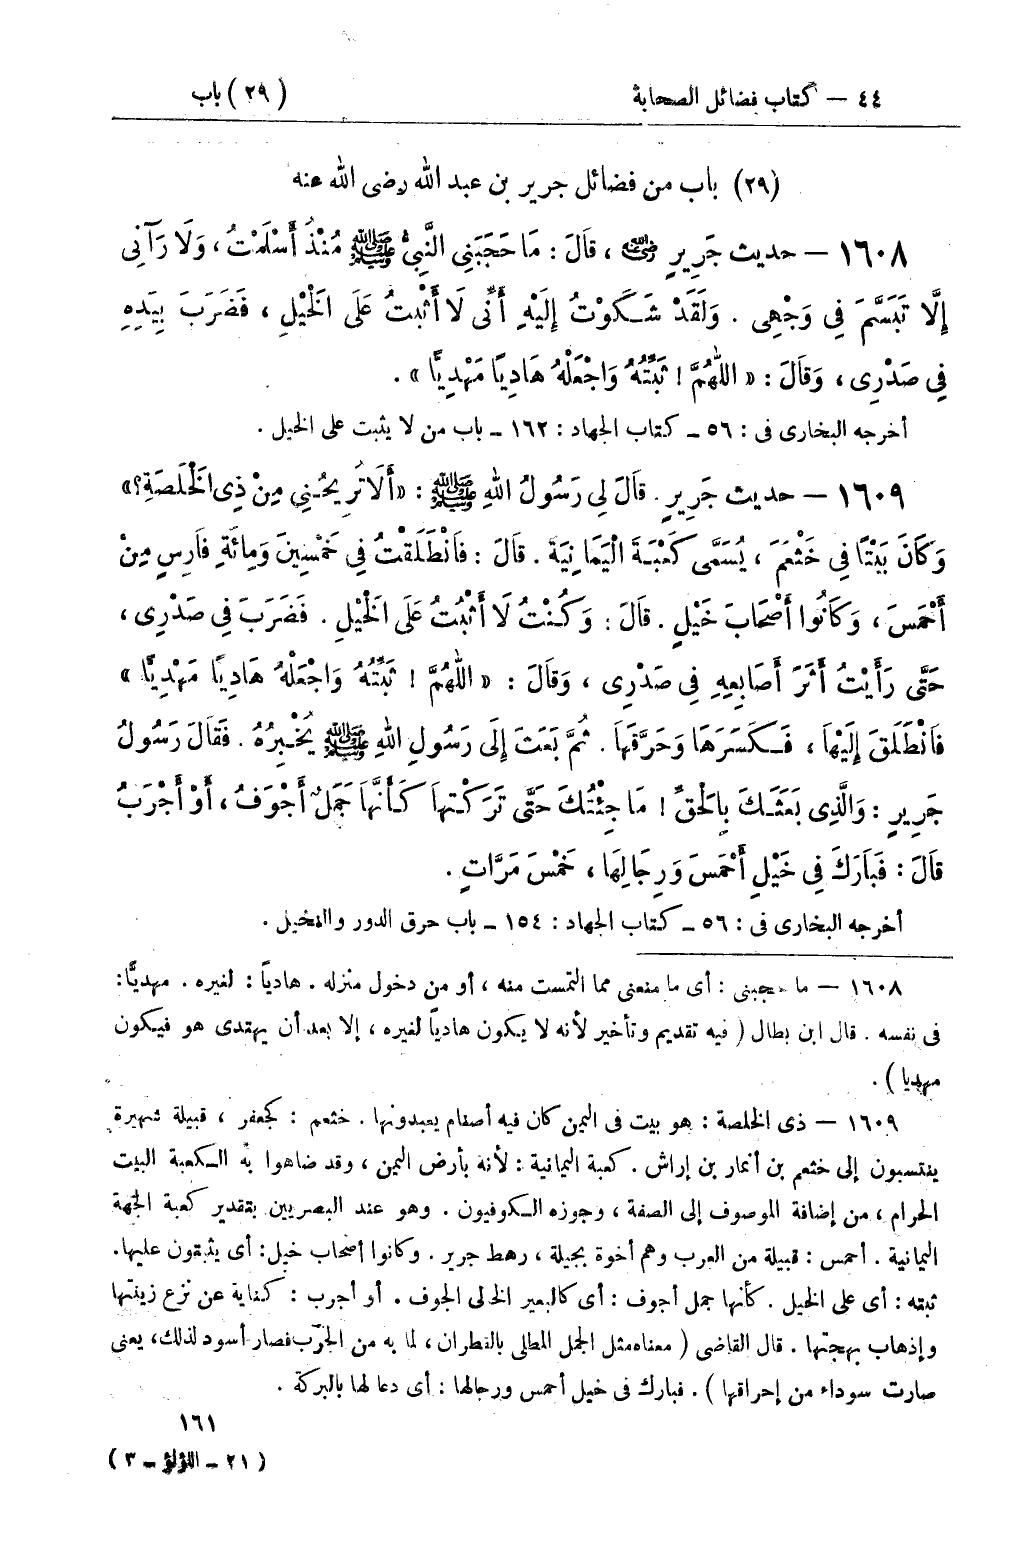 ٤٤ – كتاب فضائل الصحابة (٢٩) باب
(٢٩) باب من فضائل جرير بن عبد الله رضى الله عنه
١٦٠٨ – حديث جَرِيرٍ رضي الله عنه ، قَالَ : مَا حَجَبَنِى النَّبِىُّ ﷺ مُنْذُ أَسْلَمْتُ ، وَلَا رَآنِى
إِلَّا تَبَسَّمَ فِى وَجْهِى . وَلَقَدْ شَكَوْتُ إِلَيْهِ أَنِّى لَا أَثْبُتُ عَلَى الْخَيْلِ ، فَضَرَبَ بِيَدِهِ
فِى صَدْرِى ، وَقَالَ : « اللّٰهُمَّ ! ثَبِّتْهُ وَاجْعَلْهُ هَادِيًا مَهْدِيًّا » .
أخرجه البخارى فى : ٥٦ – كتاب الجهاد : ١٦٢ – باب من لا يثبت على الخيل .
١٦٠٩ – حديث جَرِيرٍ . قَالَ لِى رَسُولُ اللهِ ﷺ : « أَلَا تُرِيحُنِى مِنْ ذِى الْخَلَصَةِ ؟ »
وَكَانَ بَيْتًا فِى خَثْعَمَ ، يُسَمَّى كَعْبَةَ الْيَمَانِيَةَ . قَالَ : فَانْطَلَقْتُ فِى خَمْسِينَ وَمِائَةِ فَارِسٍ مِنْ
أَحْمَسَ ، وَكَانُوا أَصْحَابَ خَيْلٍ . قَالَ : وَكُنْتُ لَا أَثْبُتُ عَلَى الْخَيْلِ . فَضَرَبَ فِى صَدْرِى ،
حَتَّى رَأَيْتُ أَثَرَ أَصَابِعِهِ فِى صَدْرِى ، وَقَالَ : « اللّٰهُمَّ ! ثَبِّتْهُ وَاجْعَلْهُ هَادِيًا مَهْدِيًّا »
فَانْطَلَقَ إِلَيْهَا ، فَكَسَرَهَا وَحَرَّقَهَا . ثُمَّ بَعَثَ إِلَى رَسُولِ اللهِ ﷺ يُخْبِرُهُ . فَقَالَ رَسُولُ
جَرِيرٍ : وَالَّذِى بَعَثَكَ بِالْحَقِّ ! مَا جِئْتُكَ حَتَّى تَرَكْتُهَا كَأَنَّهَا جَمَلٌ أَجْوَفُ ، أَوْ أَجْرَبُ
قَالَ : فَبَارَكَ فِى خَيْلِ أَحْمَسَ وَرِجَالِهَا ، خَمْسَ مَرَّاتٍ .
أخرجه البخارى فى : ٥٦ – كتاب الجهاد : ١٥٤ – باب حرق الدور والنخيل .
١٦٠٨ – ما حجبنى : أى ما منعنى مما التمست منه ، أو من دخول منزله . هادياً : لغيره . مهديًّا :
فى نفسه . قال ابن بطال ( فيه تقديم وتأخير لأنه لا يكون هادياً لغيره ، إلا بعد أن يهتدى هو فيكون
مهديا ) .
١٦٠٩ – ذى الخلصة : هو بيت فى اليمن كان فيه أصنام يعبدونها . خثعم : كجعفر ، قبيلة شهيرة
ينتسبون إلى خثعم بن أنمار بن إراش . كعبة اليمانية : لأنه بأرض اليمن ، وقد ضاهوا به الكعبة البيت
الحرام ، من إضافة الموصوف إلى الصفة ، وجوزه الكوفيون . وهو عند البصريين بتقدير كعبة الجهة
اليمانية . أحمس : قبيلة من العرب وهم أخوة بجيلة ، رهط جرير . وكانوا أصحاب خيل : أى يثبتون عليها .
ثبته : أى على الخيل . كأنها جمل أجوف : أى كالبعير الخالى الجوف . أو أجرب : كناية عن نزع زينتها
وإذهاب بهجتها . قال القاضى ( معناه مثل الجمل المطلى بالقطران ، لما به من الجرب فصار أسود لذلك ، يعنى
صارت سوداء من إحراقها ) . فبارك فى خيل أحمس ورجالها : أى دعا لها بالبركة .
١٦١
( ٢١ – اللؤلؤ – ٣ )